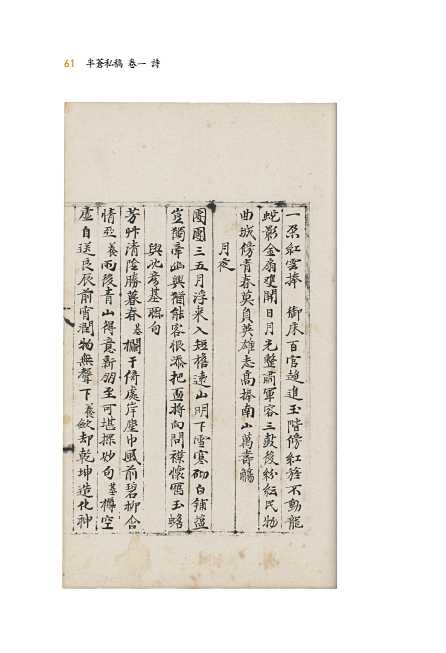 61 半蒼私稿 卷一 詩
一朶紅雲捧 御床百官趍進玉階傍紅旌不動龍
蛇影金扇雙開日月光整肅軍容三鼓後紛紜民物
曲城傍青春莫負英雄志高捧南山萬壽觴
月夜
團團三五月浮來入短檐遠山明下雪寒砌白鋪鹽
豈獨牽幽興猶能客恨添把盃將向問襟懷玉蟾
與沈彦基聯句
芳艸清陰勝暮春基欄干倚處岸塵巾風前碧柳含
情亞養雨後青山得意新到至可堪探妙句基樽空
虛自送良辰前宵潤物無聲下養斂却乾坤造化神